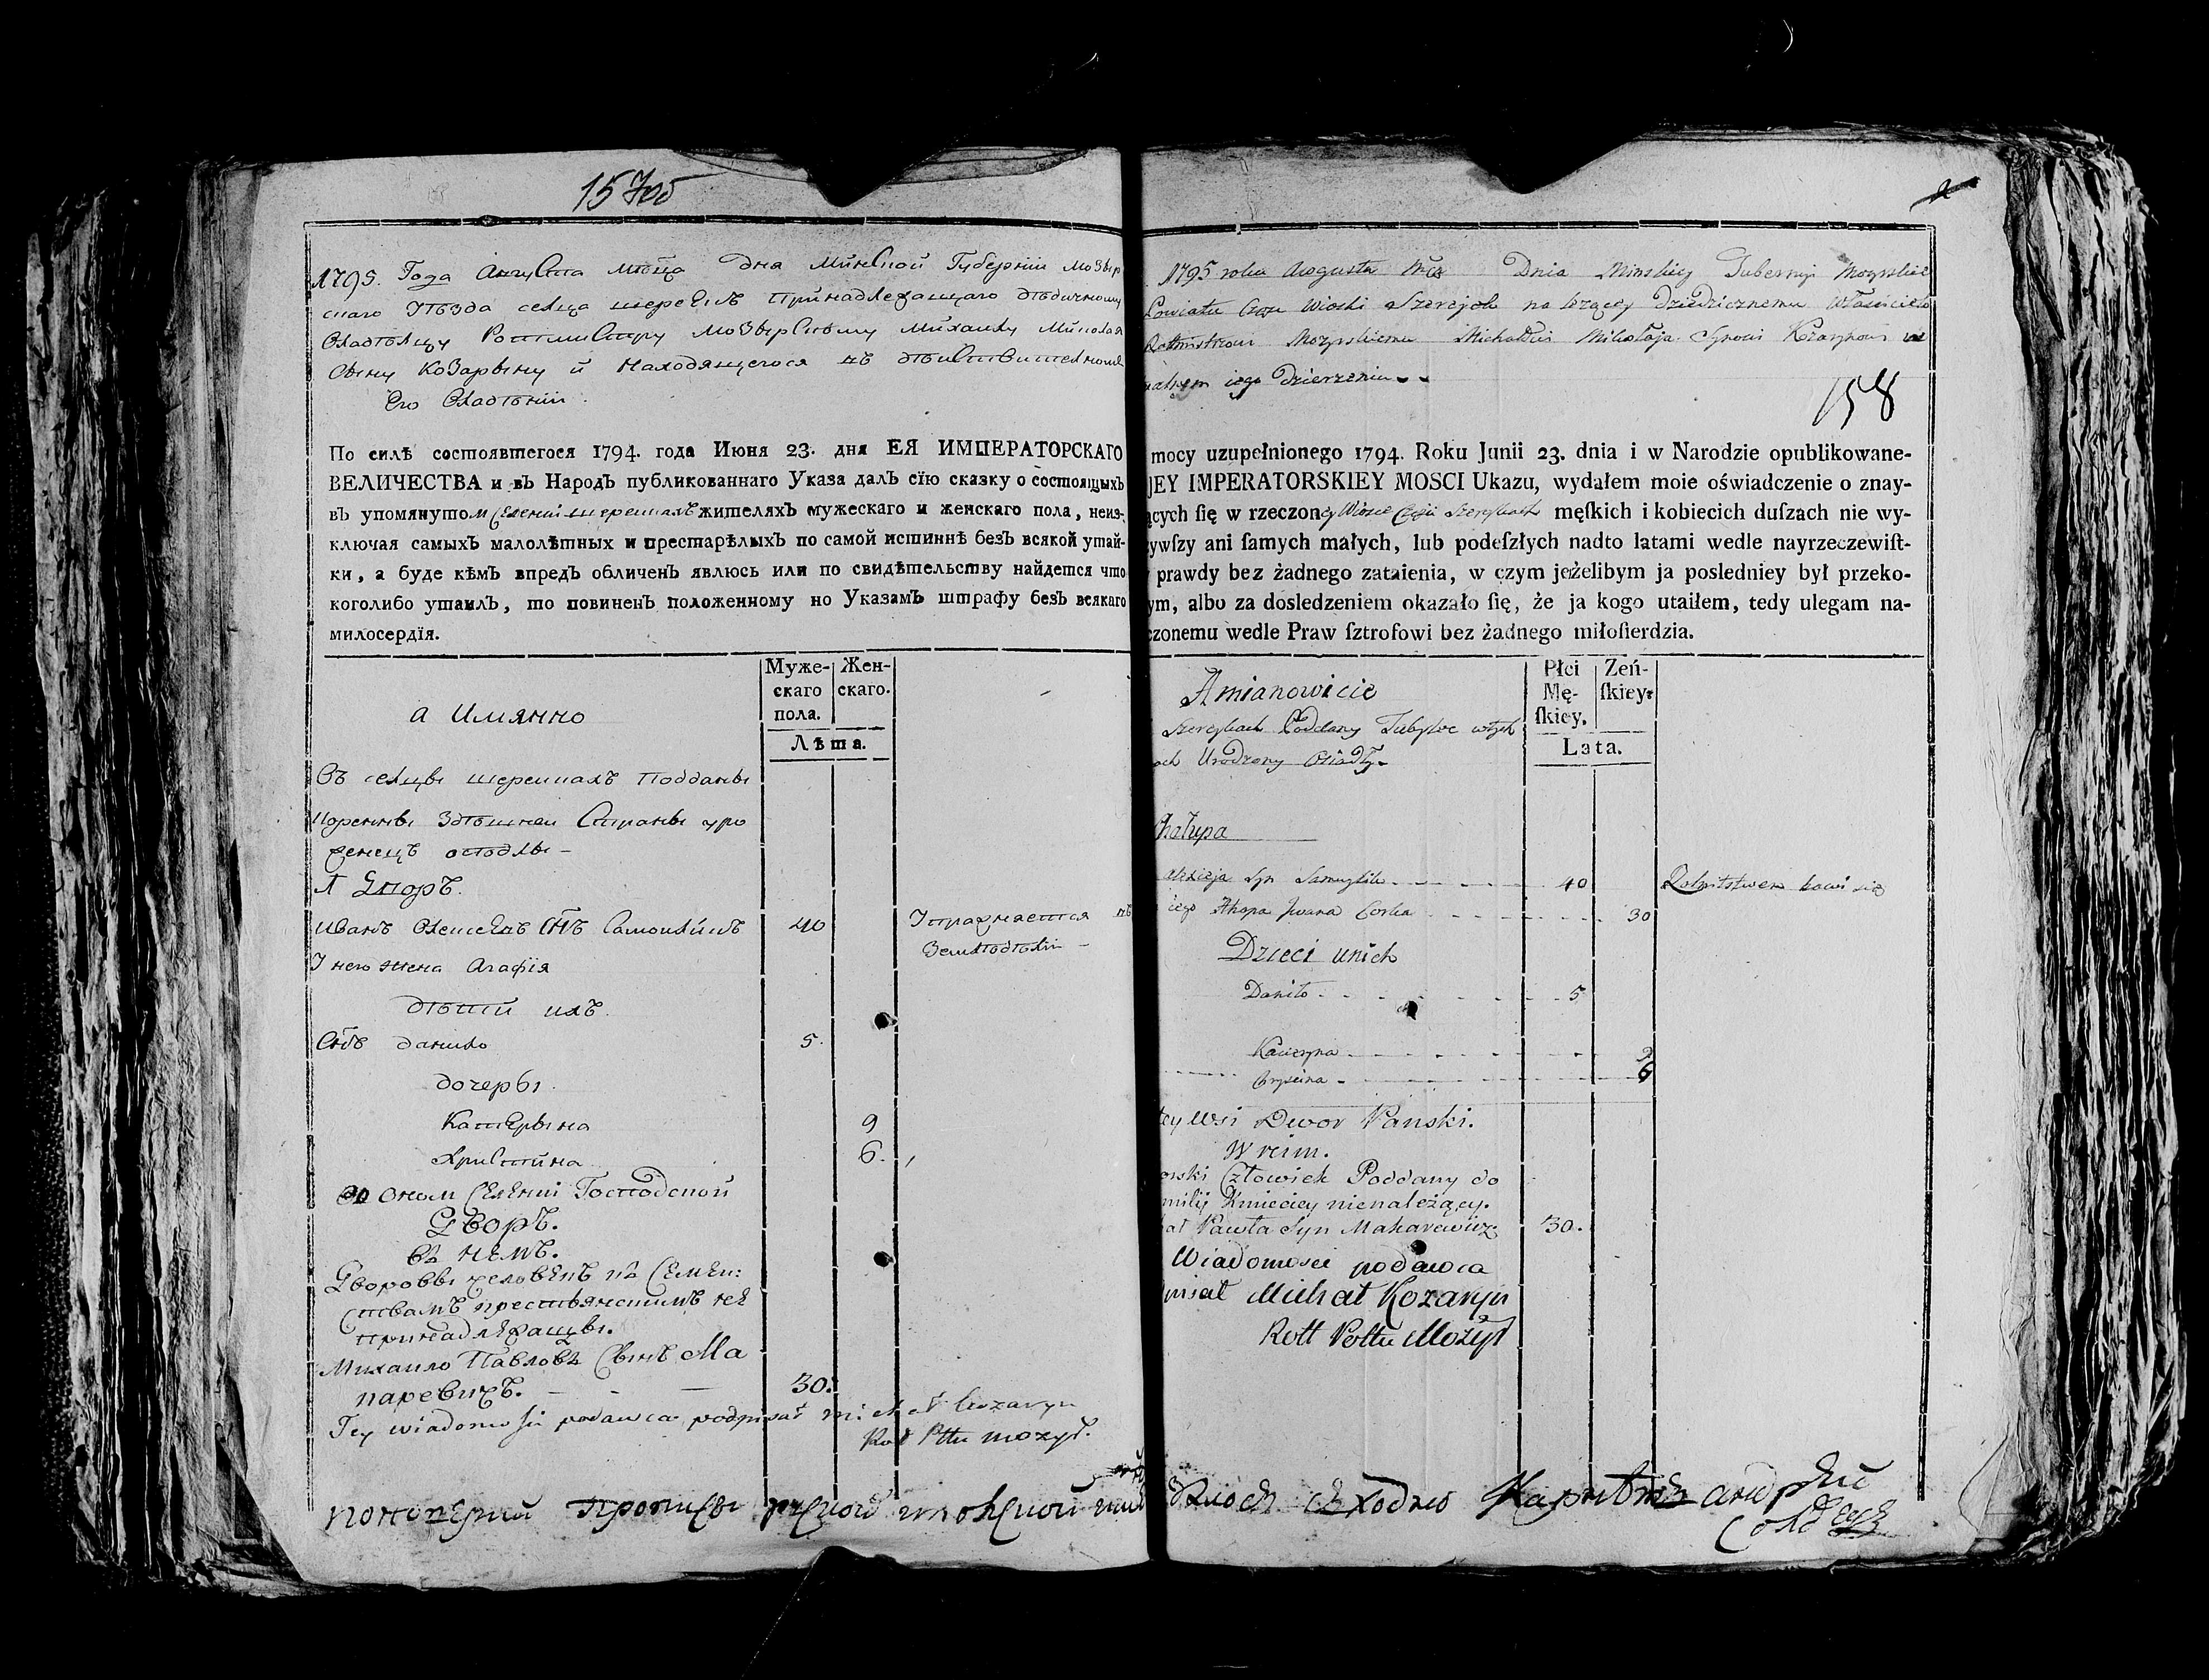 157об
1795. Года Августа мсца дна Минской Губернїи Мозыр
скаго Уѣзда селца шерекихъ принадлежащаго дѣдичному
Владѣлцу Ротмистру Мозырскому Михаилу Николая
Сыну Козарыну и находящегося въ дѣйствителномъ
Его Владѣнїи.
По силѣ состоявшегося 1794. года Июня 23. дня ЕЯ ИМПЕРАТОРСКАГО
ВЕЛИЧЕСТВА и въ Народъ публикованнаго Указа далъ сїю сказку о состоящыхъ
въ упомянутом Селенїи жителяхъ мужескаго и женскаго пола, неиз-
ключая самыхъ малолѣтныхъ и престарѣлыхъ по самой истиннѣ безъ всякой утай-
ки, а буде кѣмъ впредъ обличенъ явлюсь или по свидѣтельству найдется что
коголибо утаилъ, то повиненъ положенному по Указамъ штрафу безъ всякаго
милосердїя.
а Имянно
Муже- скаго пола.
Жен- скаго.
Лѣта.
Въ селцы подданы
коренны здѣшнеи Страны уро
женецъ оседлы-
1 Дворъ.
Иванъ Сiнъ 40 Упражнается въ
Земледелїи -
У него жена Агафїя
дѣтїй ихъ.
Снъ данило 5.
дочеры.
Катерына 9
Христина 6.
во оном Селенїи Господской
Дворъ.
въ немъ.
Дворовы человекъ къ Семеи:
ствамъ крестьянскимъ не
принадлежащы.
Михаило Павловъ Сынъ Ма
каревичъ. - - - 30.
Tey wiadomosci podawca podpisał michał kozaryn
Rot Pttu mozyr.
158
1795 roku Augusta Mca Dnia Minskiey Gubernyi Mozyrskie
Powiatu Wioski należącey Dziedzicznemu Właścicielo
Rotmistrowi Mozyrskiemu Michałowi Mikołaja Synowi Kozarynowi w
jego Dzierzeniu
mocy uzupełnionego 1794. Roku Junii 23. dnia i w Narodzie opublikowane-
JEY IMPERATORSKIEY MOSCI Ukazu, wydałem moie oświadczenie o znay-
ących ſię w rzeczoney Wiosce męſkich i kobiecich duſzach nie wy-
ywſzy ani ſamych małych, lub podeſzłych nadto latami wedle nayrzeczewiſt-
prawdy bez żadnego zataienia, w czym jeżelibym ja posledniey był przeko-
ym, albo za dosledzeniem okazało ſię, że ja kogo utaiłem, tedy ulegam na-
czonemu wedle Praw ſztrofowi bez żadnego miłoſierdzia.
A mianowicie
Płci Mę- ſkiey.
Zeń- ſkiey.
Lata.
Poddany Tubylec
Urodzony Osiadły.
Chałupa
Syn 40 Rolnictwem bawi się
iego Ahapa Jwana Corka 30
Dzieci unich
Daniło 5
Kacieryna 9
6
tey wsi Dwor Panski.
W nim.
orski Człowiek Poddany do
milij Kmieciey nienależący.
ał Pawła Syn Makarewicz 30.
Wiadomosci podawca
pisał Michał Kozaryn
Rott Pottu Mozyr